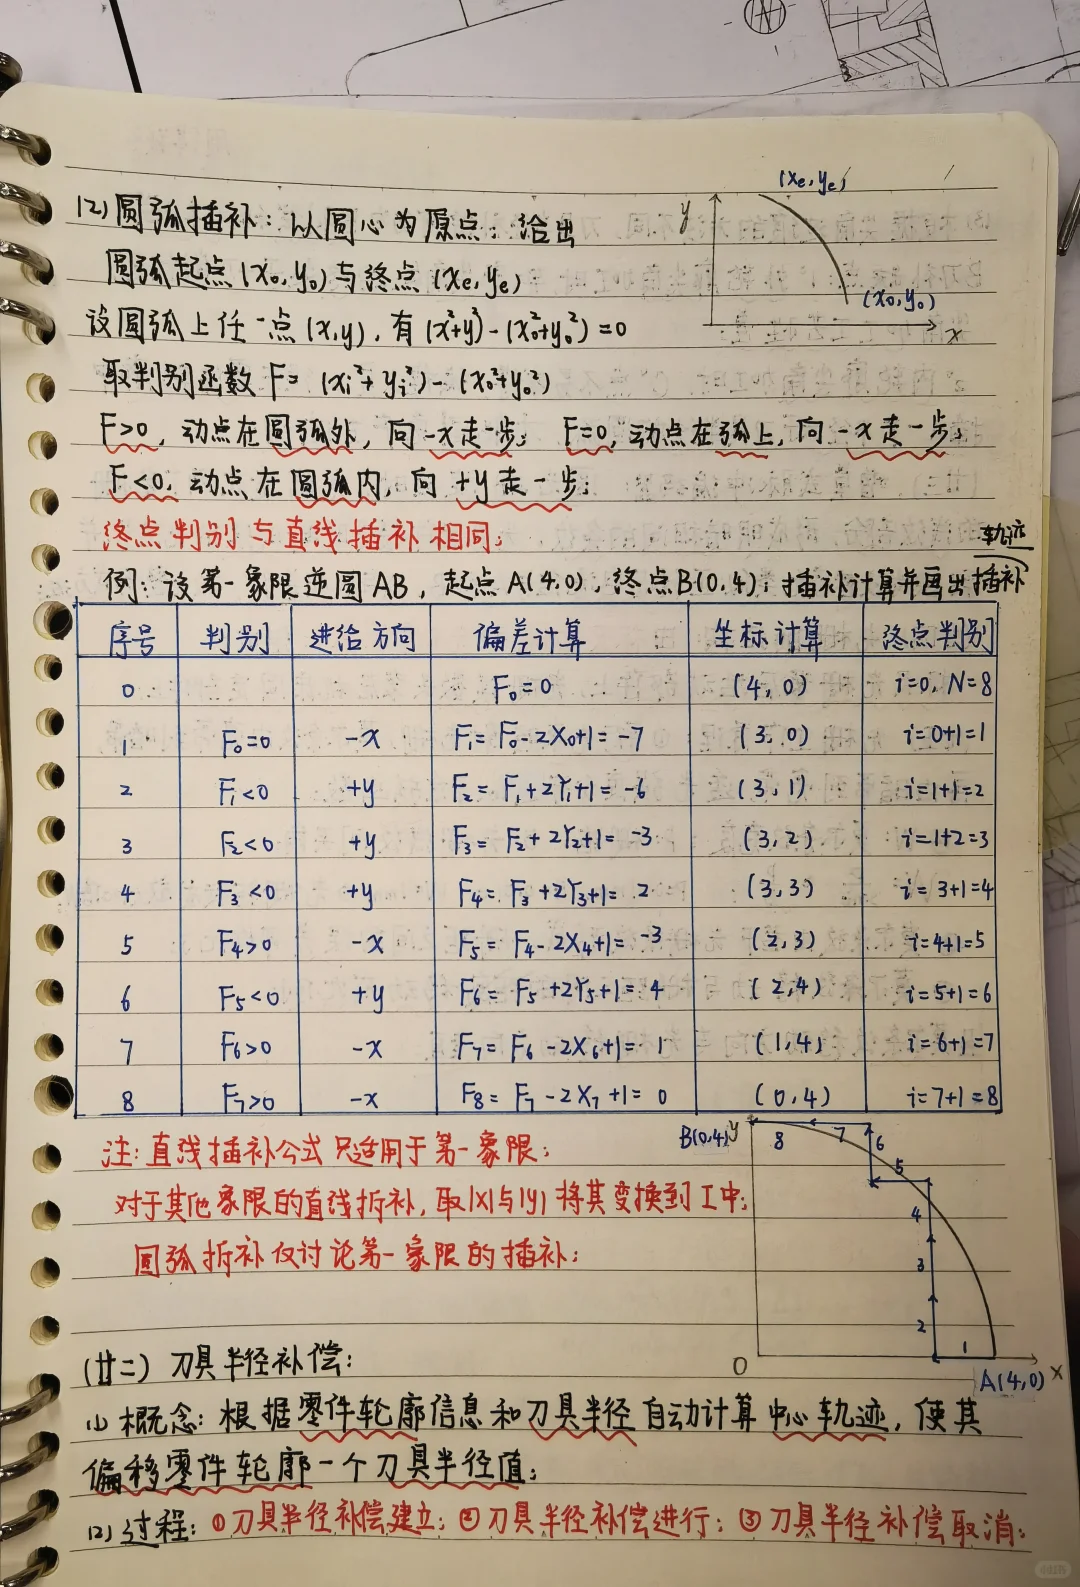 (2)圆弧插补：以圆心为原点；给出
圆弧起点(x₀,y₀)与终点(xe,ye)
设圆弧上任一点(x,y),有(x²+y²)-(x₀²+y₀²)=0
取判别函数F=(xi²+yi²)-(x₀²+y₀²)
F>0,动点在圆弧外,向-x走一步; F=0,动点在弧上,向-x走一步;
F<0,动点在圆弧内,向+y走一步;
(xe,ye)
y
(x₀,y₀)
x
终点判别与直线插补相同;
例:设第一象限逆圆AB,起点A(4,0),终点B(0,4);插补计算并画出插补
轨迹
序号 判别 进给方向 偏差计算 坐标计算 终点判别
0 F₀=0 (4,0) i=0,N=8
1 F₀=0 -x F₁=F₀-2X₀+1=-7 (3,0) i=0+1=1
2 F₁<0 +y F₂=F₁+2Y₁+1=-6 (3,1) i=1+1=2
3 F₂<0 +y F₃=F₂+2Y₂+1=-3 (3,2) i=1+2=3
4 F₃<0 +y F₄=F₃+2Y₃+1=2 (3,3) i=3+1=4
5 F₄>0 -x F₅=F₄-2X₄+1=-3 (2,3) i=4+1=5
6 F₅<0 +y F₆=F₅+2Y₅+1=4 (2,4) i=5+1=6
7 F₆>0 -x F₇=F₆-2X₆+1=1 (1,4) i=6+1=7
8 F₇>0 -x F₈=F₇-2X₇+1=0 (0,4) i=7+1=8
注:直线插补公式只适用于第一象限;
对于其他象限的直线拆补,取|X|与|y|将其变换到I中;
圆弧拆补仅讨论第一象限的插补;
B(0,4) y
8 7 6
5
4
3
2
1
O
A(4,0) x
(廿二)刀具半径补偿:
(1)概念:根据零件轮廓信息和刀具半径自动计算中心轨迹,使其
偏移零件轮廓一个刀具半径值;
(2)过程:①刀具半径补偿建立;②刀具半径补偿进行;③刀具半径补偿取消;
小红书